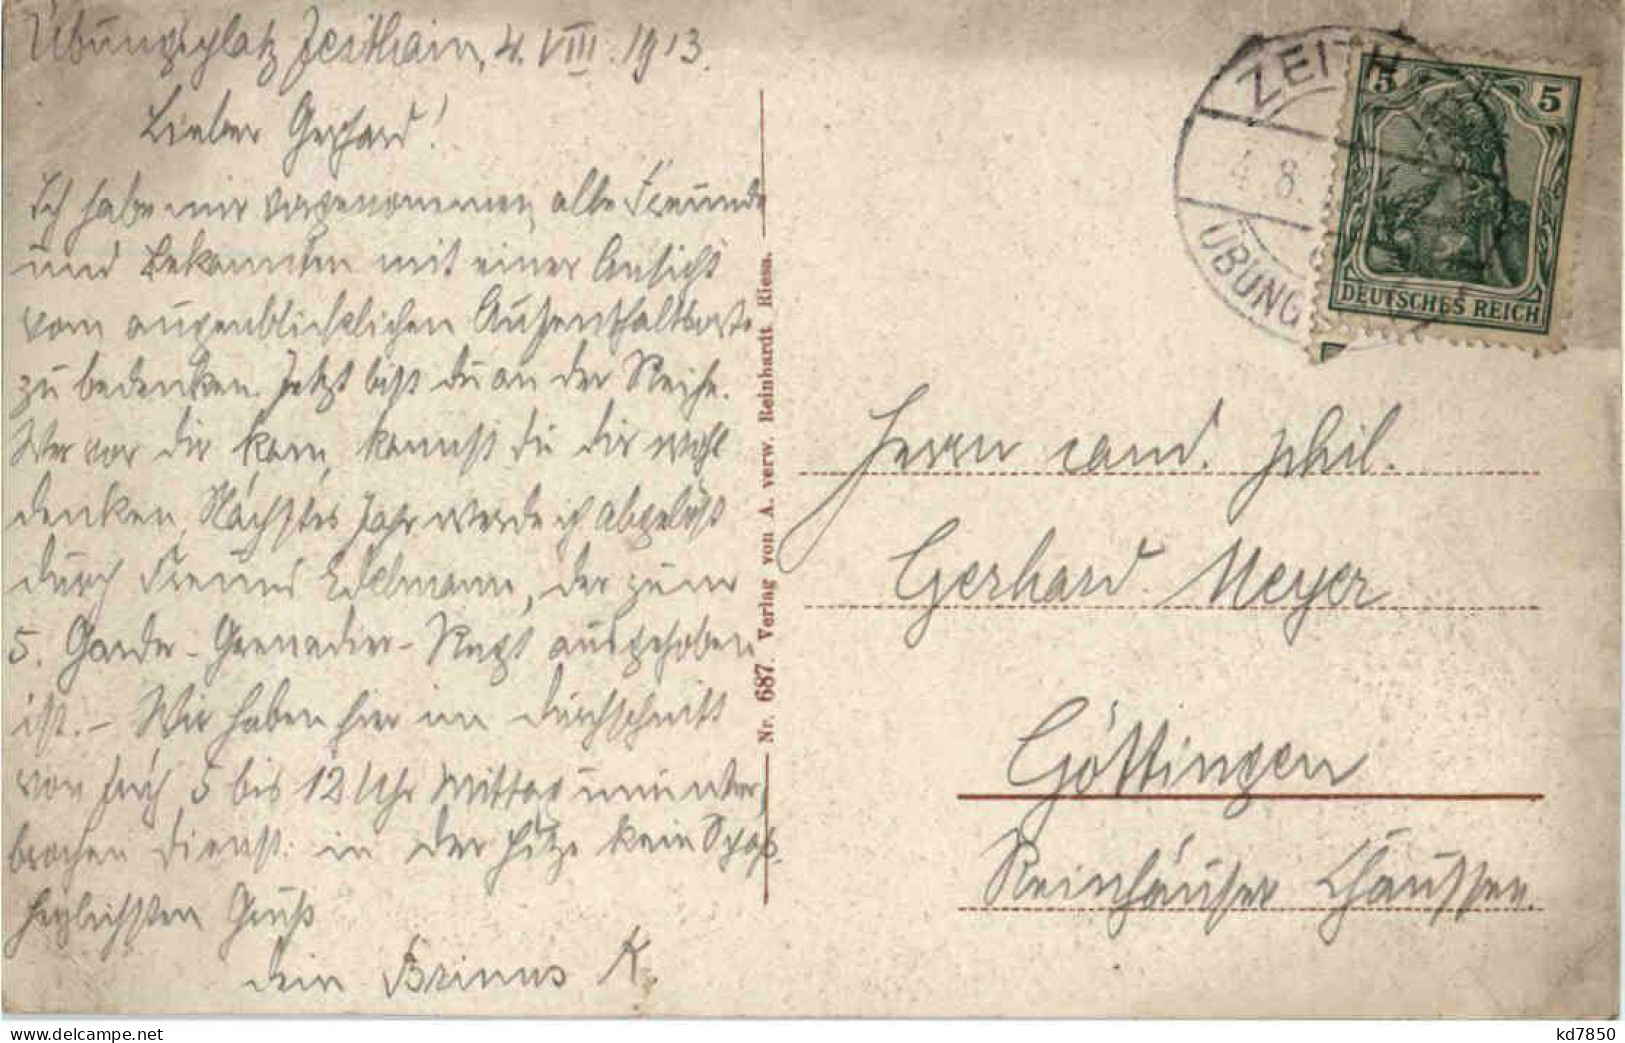 Übungsplatz Zeithain, 4. VIII. 1913.
Lieber Gerhard!
Ich habe mir vorgenommen, alle Freunde
und Bekannten mit einer Ansicht
vom augenblicklichen Aufenthaltsorte
zu bedenken. Jetzt bist du an der Reihe.
Wer vor dir kam, kannst du dir wohl
denken. Nächstes Jahr werde ich abgelöst
durch Freund Edelmann, der zum
5. Garde-Grenadier-Regt ausgehoben
ist. - Wir haben hier im Durchschnitt
von früh 5 bis 12 Uhr Mittag ununter-
brochen Dienst. in der Hitze kein Spaß.
Herzlichsten Gruß
dein Brinus K.
Nr. 687. Verlag von A. verw. Reinhardt Riesa.
ZEITH
4.8.
ÜBUNG
5 5
DEUTSCHES REICH
Herrn cand. phil.
Gerhard Meyer
Göttingen
Reinhäuser Chaussee.
kd7850